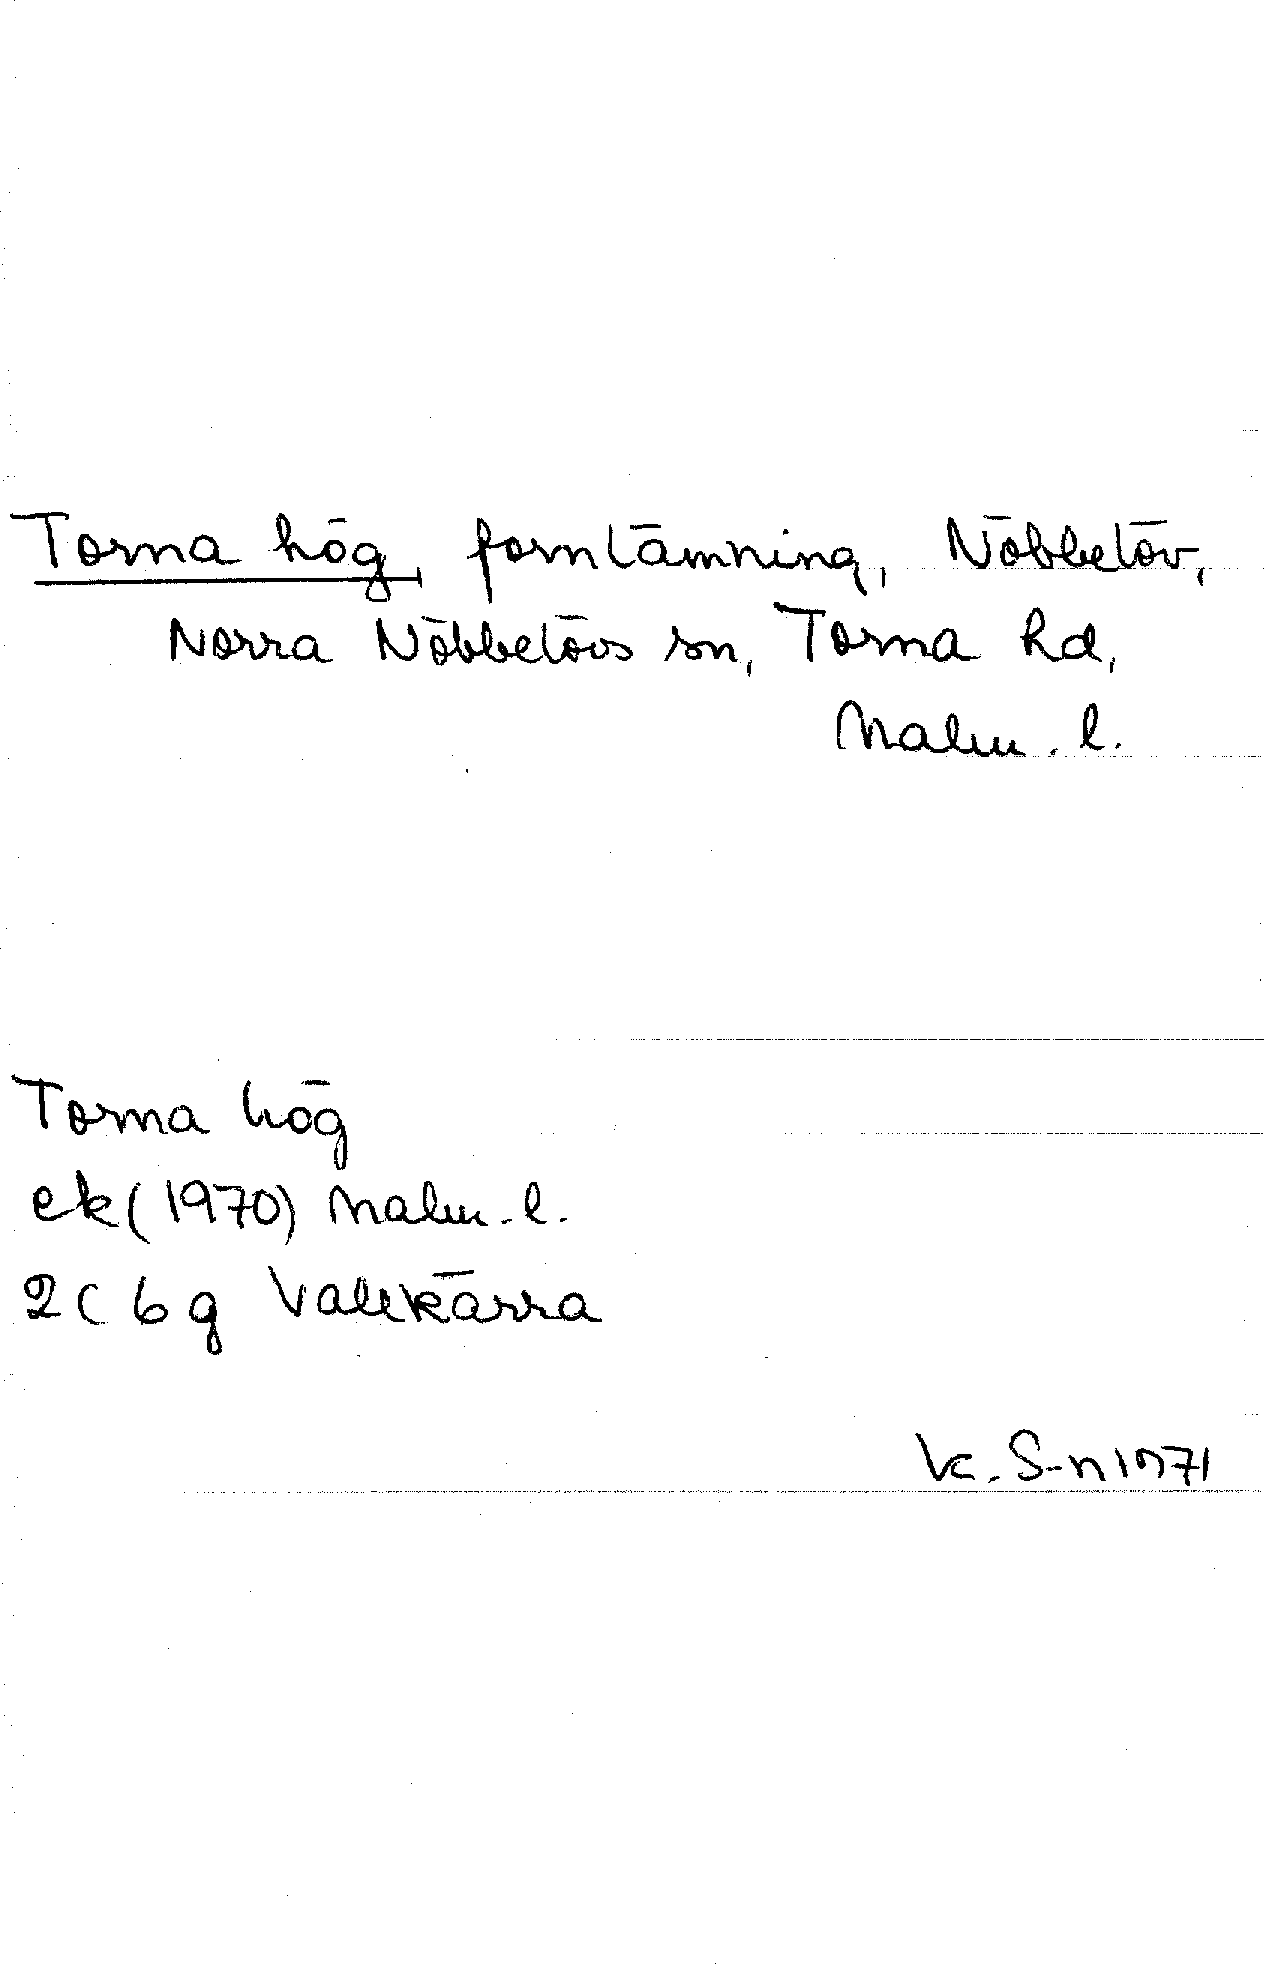 Torna hög, fornlämning, Nöbbelöv,
Norra Nöbbelövs sn, Torna hd,
Malm. l.
Torna hög
ek (1970) Malm. l.
2C 6g Vallkärra
K. S-n 1971